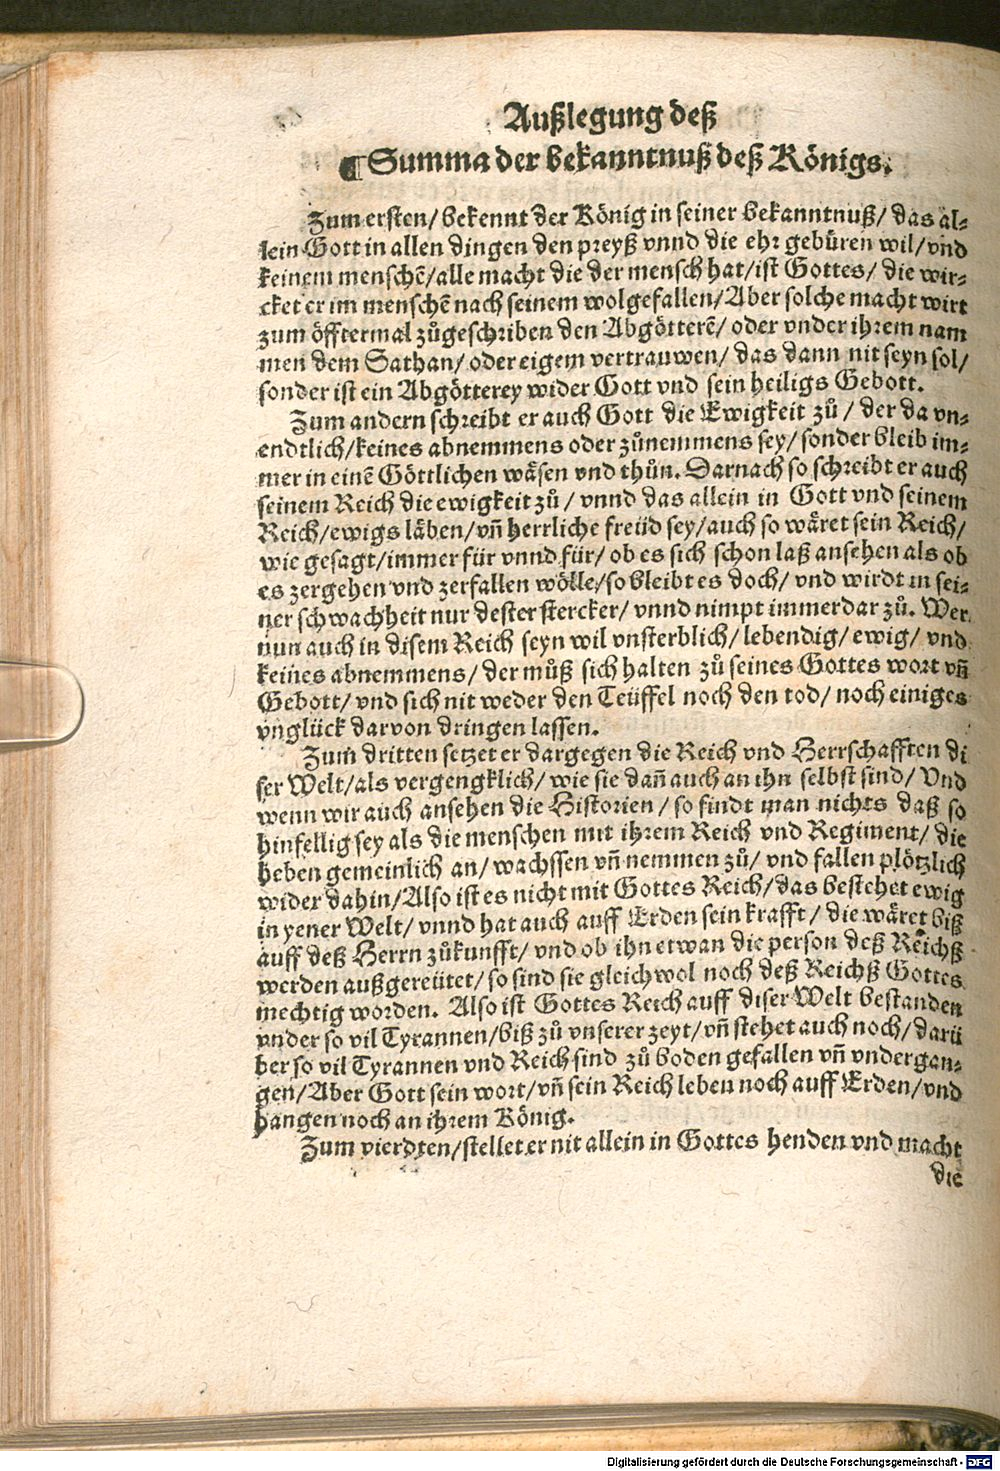 Außlegung deß
¶ Summa der bekanntnuß deß Königs.
Zum ersten/ bekennt der König in seiner bekanntnuß/ das al⸗
lein Gott in allen dingen den preyß vnnd die ehr gebüren wil/ vnd
keinem menschē/ alle macht die der mensch hat/ ist Gottes/ die wir⸗
cket er im menschē nach seinem wolgefallen/ Aber solche macht wirt
zum öfftermal zůgeschriben den Abgötterē/ oder vnder ihrem nam
men dem Sathan/ oder eigem vertrauwen/ das dann nit seyn sol/
sonder ist ein Abgötterey wider Gott vnd sein heiligs Gebott.
Zum andern schreibt er auch Gott die Ewigkeit zů/ der da vn⸗
endtlich/ keines abnemmens oder zůnemmens sey/ sonder bleib im⸗
mer in einē Göttlichen wäsen vnd thůn. Darnach so schreibt er auch
seinem Reich die ewigkeit zů/ vnnd das allein in Gott vnd seinem
Reich/ ewigs läben/ vñ herrliche freüd sey/ auch so wäret sein Reich/
wie gesagt/ immer für vnnd für/ ob es sich schon laß ansehen als ob
es zergehen vnd zerfallen wölle/ so bleibt es doch/ vnd wirdt in sei⸗
ner schwachheit nur dester stercker/ vnnd nimpt immerdar zů. Wer
nun auch in disem Reich seyn wil vnsterblich/ lebendig/ ewig/ vnd
keines abnemmens/ der můß sich halten zů seines Gottes wort vñ
Gebott/ vnd sich nit weder den Teüffel noch den tod/ noch einiges
vnglück darvon dringen lassen.
Zum dritten setzet er dargegen die Reich vnd Herrschafften di
ser Welt/ als vergengklich/ wie sie dañ auch an ihn selbst sind/ Vnd
wenn wir auch ansehen die Historien/ so findt man nichts daß so
hinfellig sey als die menschen mit ihrem Reich vnd Regiment/ die
heben gemeinlich an/ wachssen vñ nemmen zů/ vnd fallen plötzlich
wider dahin/ Also ist es nicht mit Gottes Reich/ das bestehet ewig
in yener Welt/ vnnd hat auch auff Erden sein krafft/ die wäret biß
auff deß Herrn zůkunfft/ vnd ob ihn etwan die person deß Reichß
werden außgereütet/ so sind sie gleichwol noch deß Reichß Gottes
mechtig worden. Also ist Gottes Reich auff diser Welt bestanden
vnder so vil Tyrannen/ biß zů vnserer zeyt/ vñ stehet auch noch/ darü
ber so vil Tyrannen vnd Reich sind zů boden gefallen vñ vndergan⸗
gen/ Aber Gott sein wort/ vñ sein Reich leben noch auff Erden/ vnd
hangen noch an ihrem König.
Zum vierdten/ stellet er nit allein in Gottes henden vnd macht
die
Digitalisierung gefördert durch die Deutsche Forschungsgemeinschaft - DFG